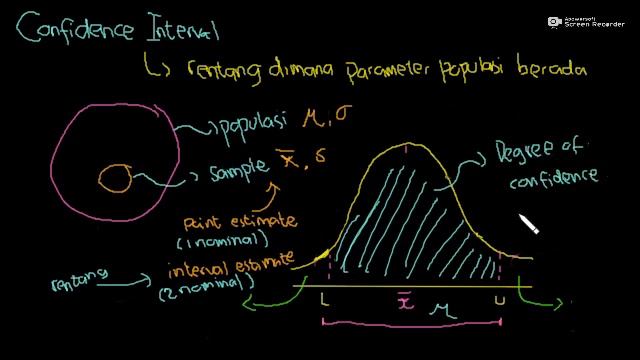 Confidence Interval
Apowersoft
Screen Recorder
↳ rentang dimana parameter populasi berada
populasi μ, σ
sample x̄, s
Degree of
confidence
point estimate
(1 nominal)
rentang → interval estimate
(2 nominal)
L x̄ μ U